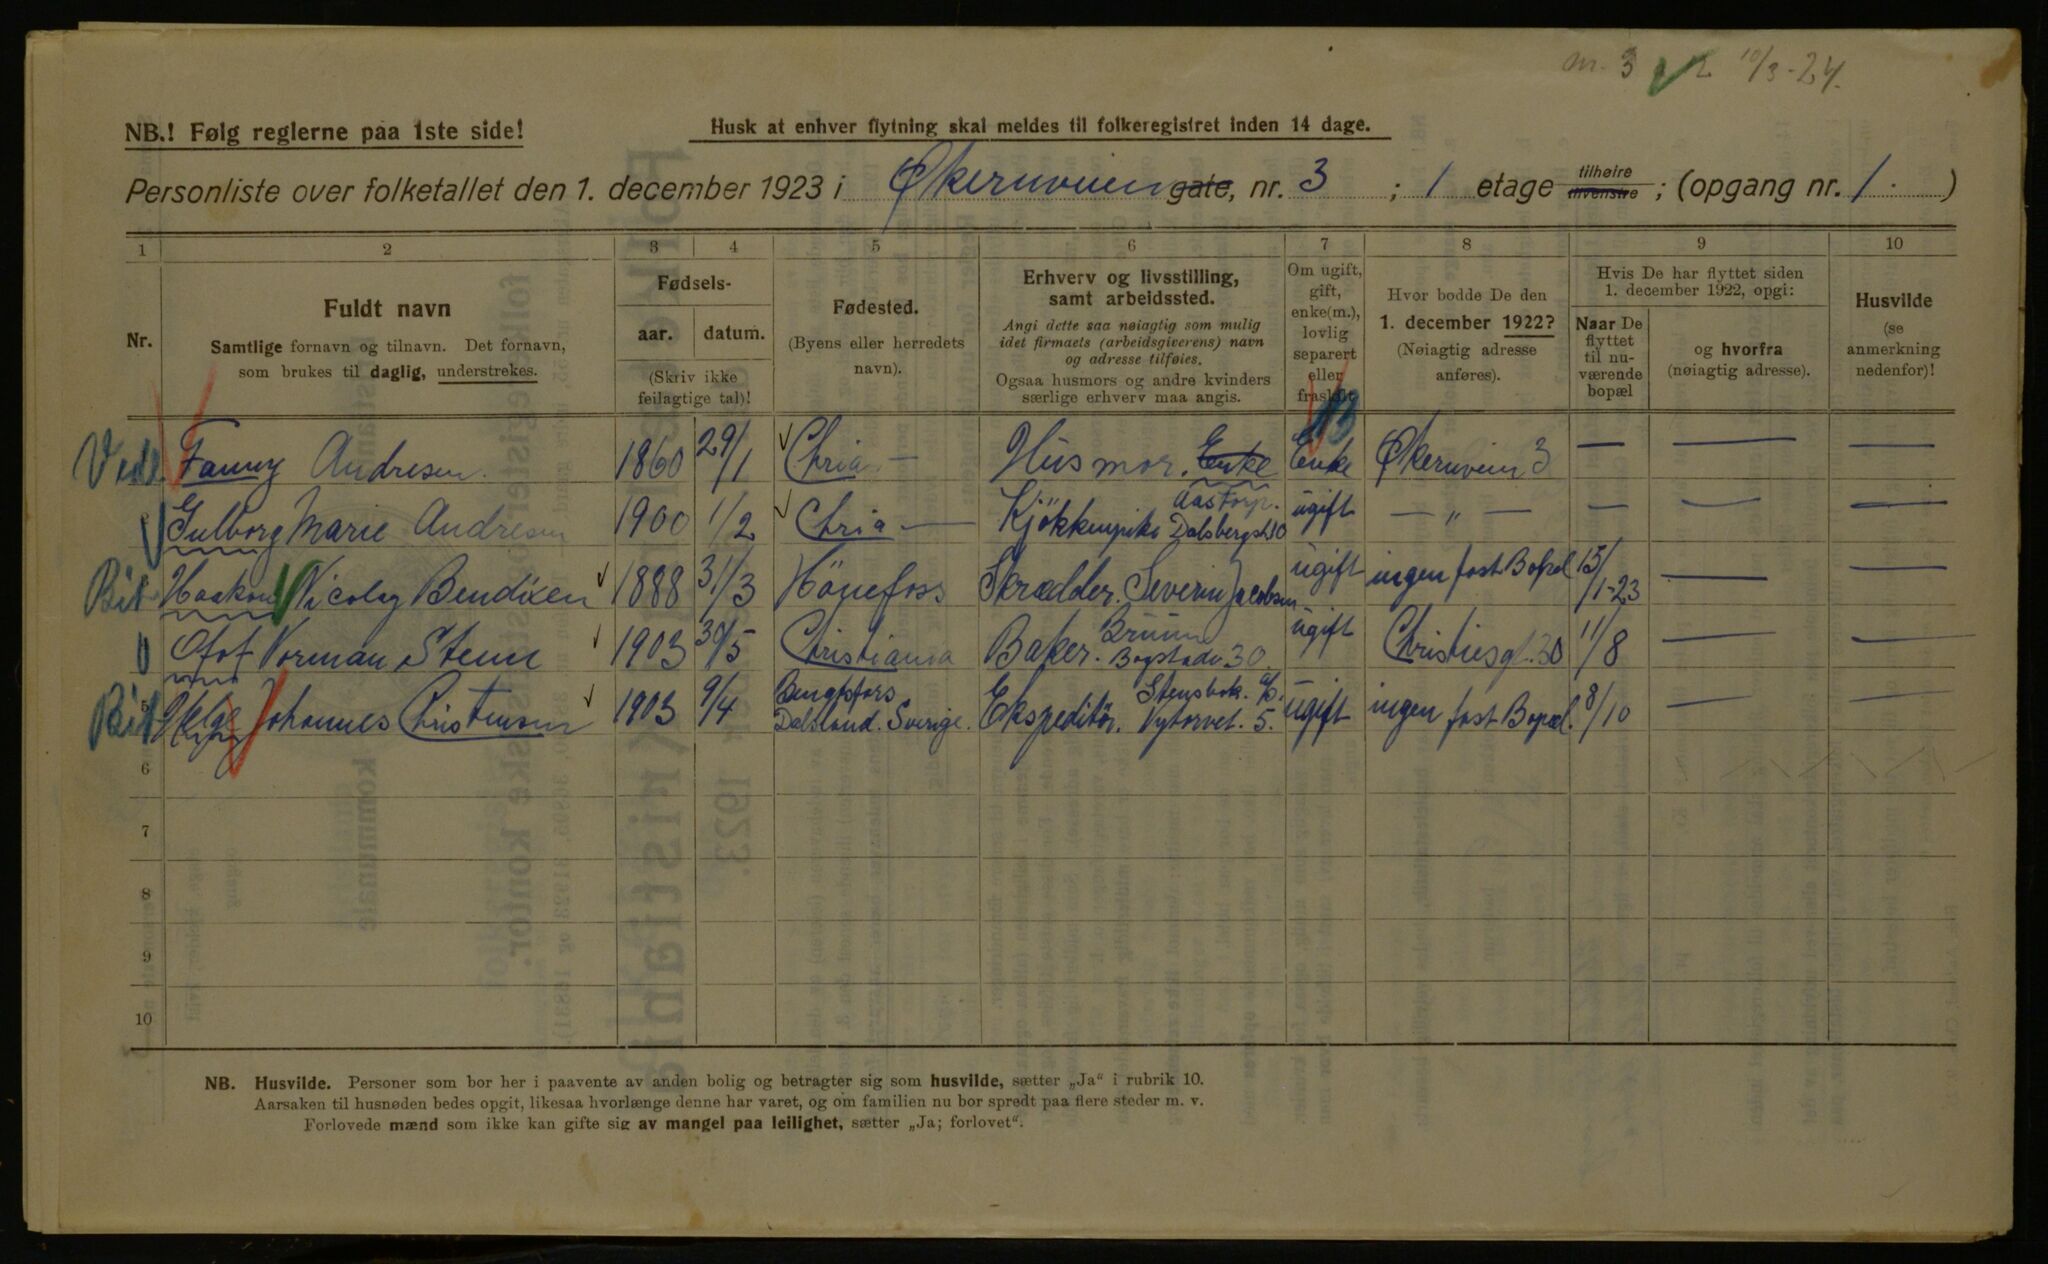 nr. 3 10/3-24.
NB.! Følg reglerne paa 1ste side!
Husk at enhver flytning skal meldes til folkeregistret inden 14 dage.
Personliste over folketallet den 1. december 1923 i Økernveien gate, nr. 3 ; 1 etage tilhøire tilvenstre ; (opgang nr. 1. )
1 2 3 4 5 6 7 8 9 10
Nr.
Fuldt navn
Samtlige fornavn og tilnavn. Det fornavn,
som brukes til daglig, understrekes.
Fødsels-
aar. datum.
(Skriv ikke
feilagtige tal)!
Fødested.
(Byens eller herredets
navn).
Erhverv og livsstilling,
samt arbeidssted.
Angi dette saa nøiagtig som mulig
idet firmaets (arbeidsgiverens) navn
og adresse tilføies.
Ogsaa husmors og andre kvinders
særlige erhverv maa angis.
Om ugift,
gift,
enke(m.),
lovlig
separert
eller
fraskilt
Hvor bodde De den
1. december 1922?
(Nøiagtig adresse
anføres).
Hvis De har flyttet siden
1. december 1922, opgi:
Naar De
flyttet
til nu-
værende
bopæl
og hvorfra
(nøiagtig adresse).
Husvilde
(se
anmerkning
nedenfor)!
Fanny Andresen. 1860 29/1 Chria — Husmor. Enke Enke Økernveien 3 — — —
Gulborg Marie Andresen 1900 1/2 Chria — Kjökkenpike Aas Forp. Dalsbergst 10 ugift — „ — — — —
Bit Haakon Nicolay Bendixen 1888 31/3 Hönefoss Skrædder. Severin Jacobsen ugift ingen fast Bopæl 15/1-23 — —
Olof Norman Stenn 1903 30/5 Christiania Baker. Bruun Bogstadv. 30. ugift Christiesgt. 30 11/8 — —
Bit 5 Helge Johannes Christensen 1903 9/4 Bengtsfors Dalsland. Sverige. Ekspeditör. Stensbok. a/s. Nytorvet. 5. ugift ingen fast Bopæl. 8/10 — —
6
7
8
9
10
NB. Husvilde. Personer som bor her i paavente av anden bolig og betragter sig som husvilde, sætter „Ja“ i rubrik 10.
Aarsaken til husnøden bedes opgit, likesaa hvorlænge denne har varet, og om familien nu bor spredt paa flere steder m. v.
Forlovede mænd som ikke kan gifte sig av mangel paa leilighet, sætter „Ja; forlovet“.